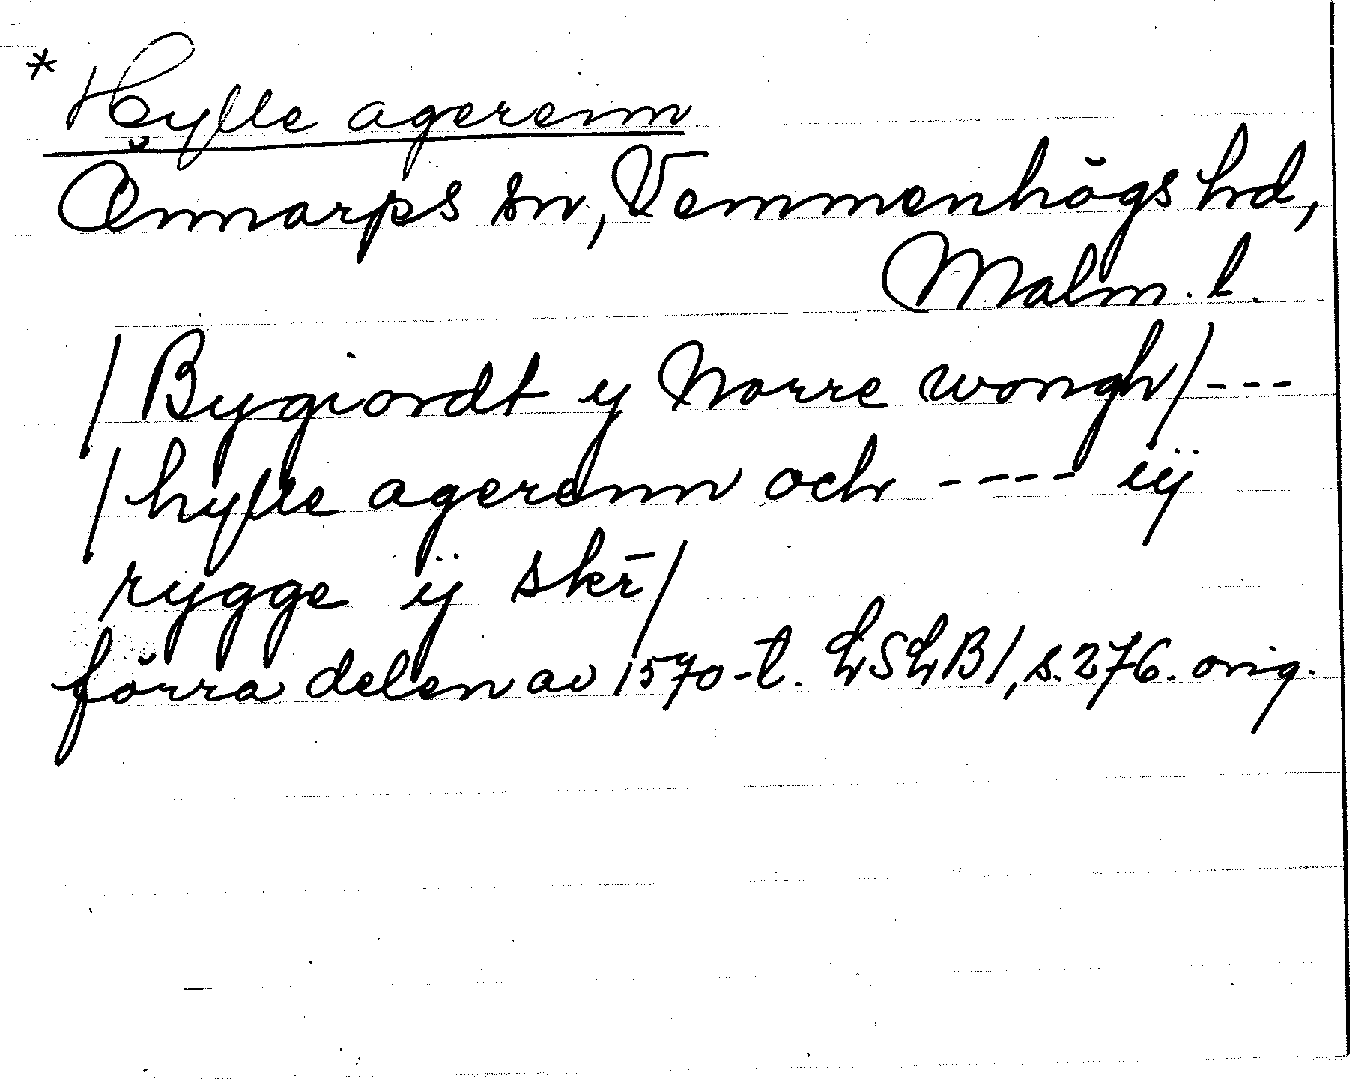 * Hylle agerenn
Önnarps sn, Vemmenhögs hd,
Malm. l.
/Bygiordt y Norre wongh/---
/hylle agerenn och ---- iÿ
rygge ÿ skr̄/
förra delen av 1570-t. LSLB1, s. 276. orig.